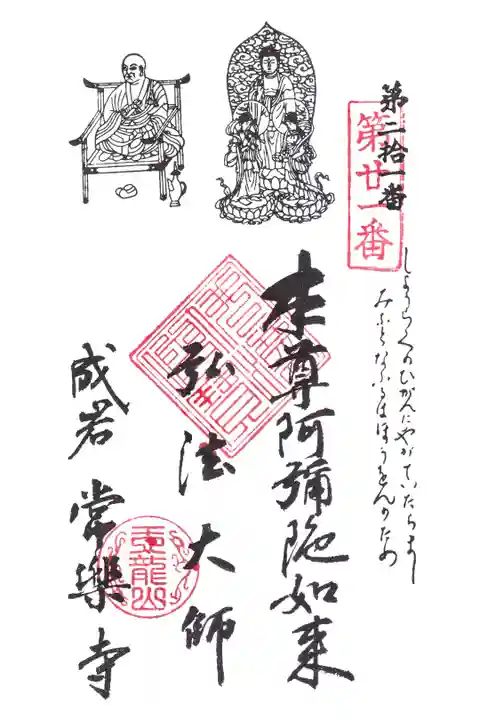 第二拾一番
第廿一番
じようらくのひがんにやがていたらまし
みふとなふるはほうをんのため
本尊阿彌陀如来
弘法大師
成岩 常樂寺
天龍山